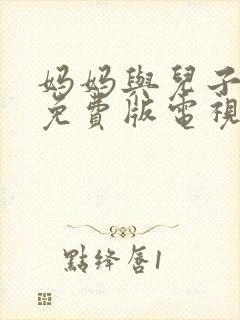 妈妈與兒子
免費版電視
點绛唇1